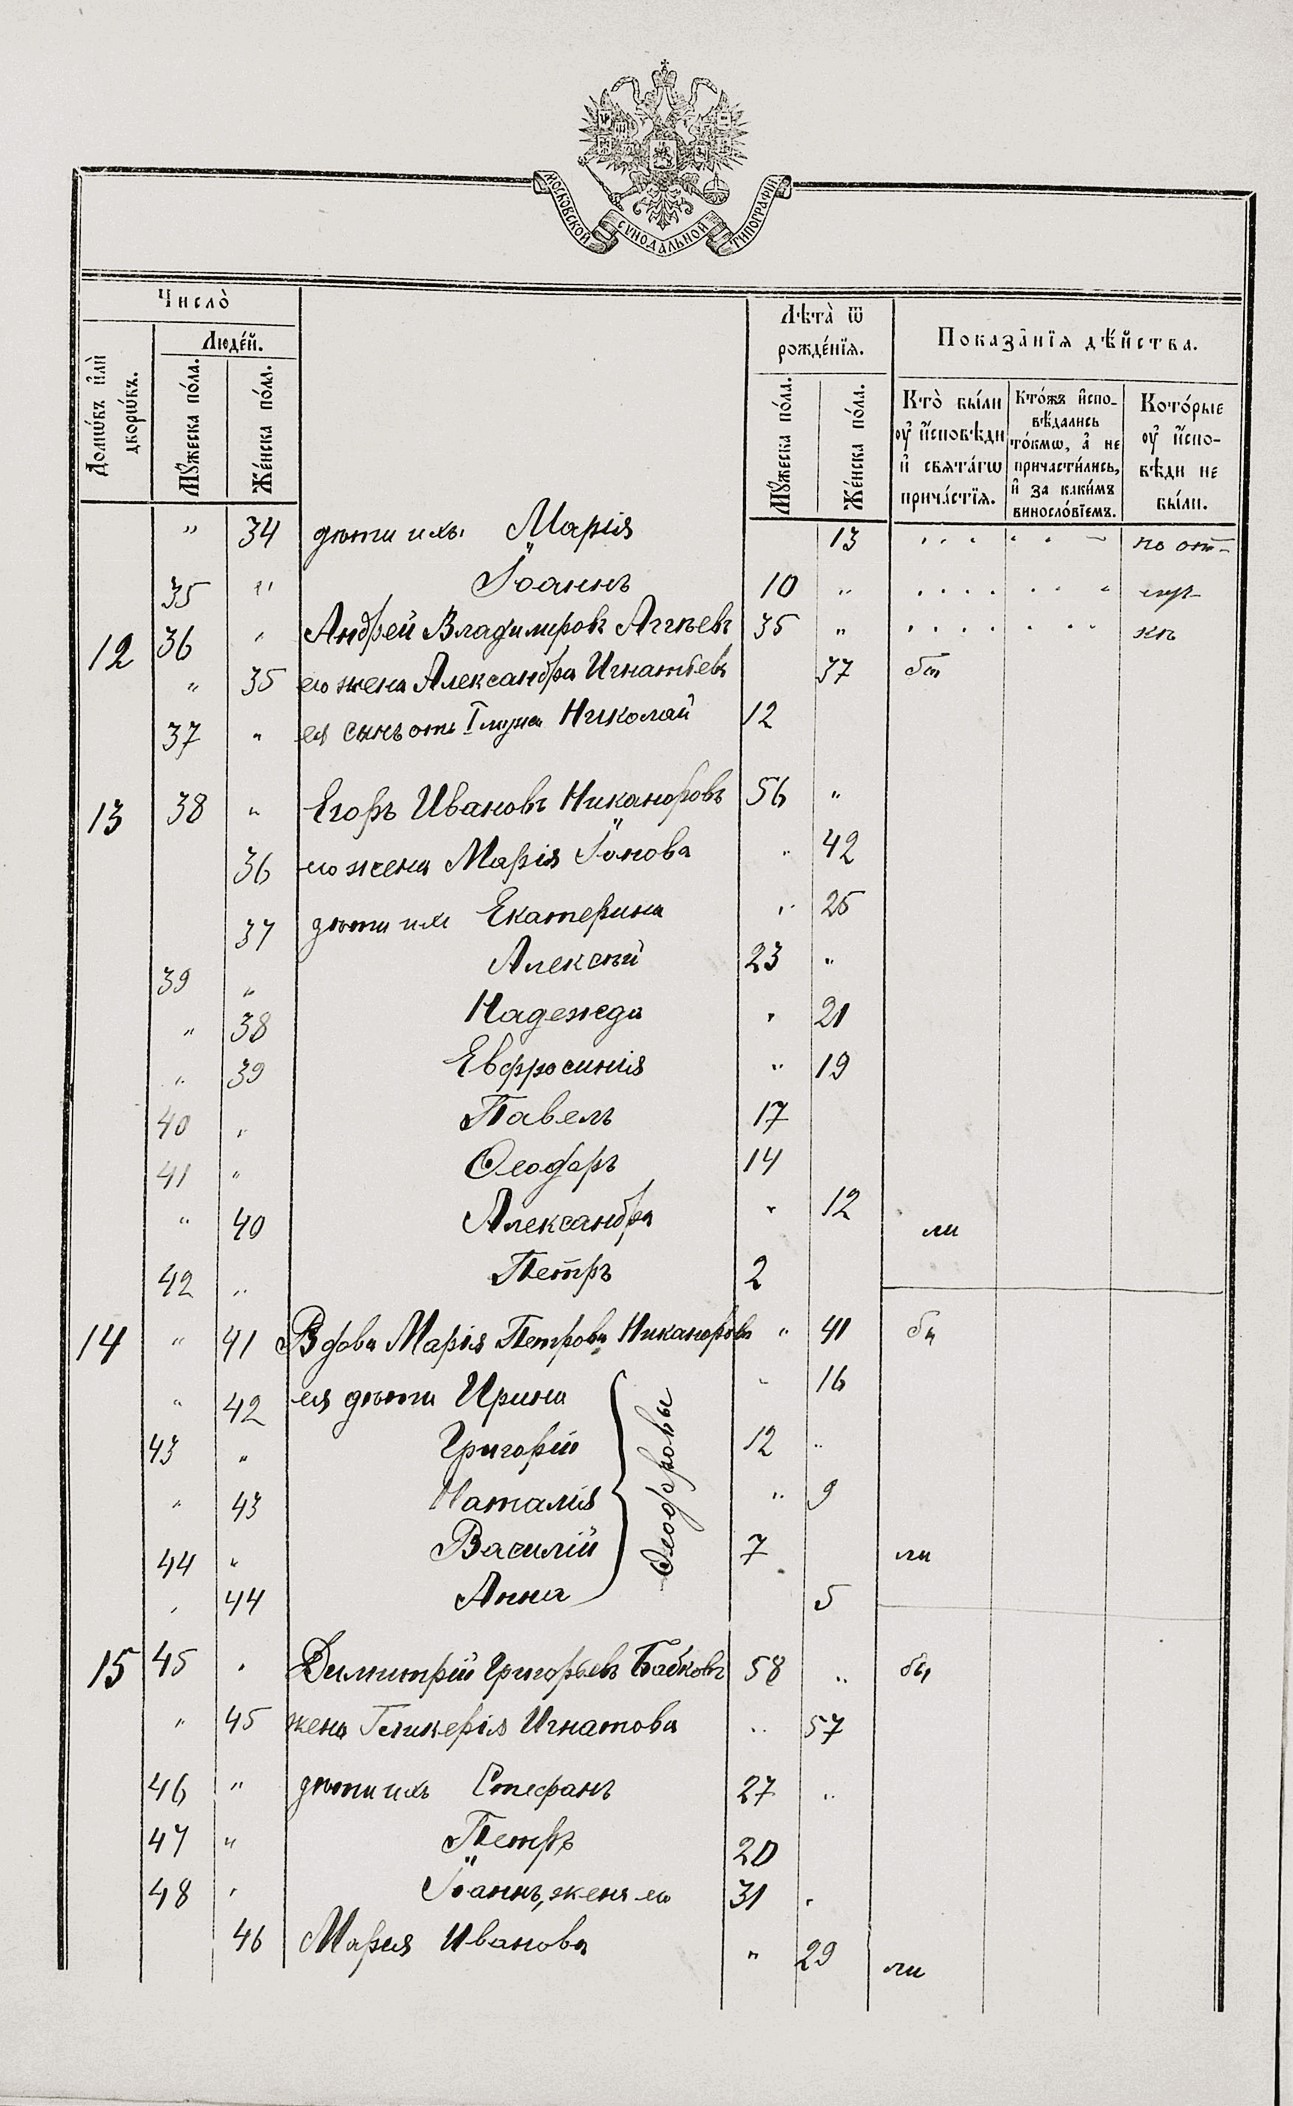 МОСКОВСКОЙ СѴНОДАЛЬНОЙ ТИПОГРАФІИ
Число̀
Людéй.
Домѡ́въ и҆лѝ дворѡ́въ.
Мꙋ́жеска по́ла.
Же́нска по́ла.
Лѣта̀ ѿ рожде́нїѧ.
Мꙋ́жеска по́ла.
Же́нска по́ла.
Показа̑нїѧ дѣ́йства.
Кто̀ бы́ли ᲂу҆ и҆сповѣди и҆ свѧта́гѡ прича́стїѧ.
Кто́жъ и҆сповѣ́дались то́кмѡ, а҆ не причасти́лись, и҆ за каки́мъ винослов́їемъ.
Кото́рые ᲂу҆ и҆спо-вѣди не бы́ли.
" 34 дѣти ихъ Марія 13 по от-
35 " Іоаннъ 10 "
12 36 " Андрей Владимировъ Аггѣевъ 35 "
" 35 его жена Александра Игнатьева 37 бы
37 " ея сынъ отъ I мужа Николай 12
13 38 " Егоръ Ивановъ Никаноровъ 56 "
36 его жена Марія Іонова " 42
37 дѣти ихъ Екатерина " 25
39 " Алексѣй 23 "
" 38 Надежда " 21
" 39 Евфросинія " 19
40 " Павелъ 17
41 " Ѳеодоръ 14
" 40 Александра " 12 ли
42 " Петръ 2
14 " 41 Вдова Марія Петрова Никанорова " 41 бы
" 42 ея дѣти Ирина " 16
43 " Григорій 12 "
" 43 Наталія " 9
44 " Василій 7 ли
" 44 Анна 5
Ѳеодоровы
15 45 " Димитрій Григорьевъ Бабковъ 58 " бы
" 45 жена Гликерія Игнатова " 57
46 " дѣти ихъ Стефанъ 27 "
47 " Петръ 20
48 " Іоаннъ, жена его 31 "
46 Марія Иванова " 29 ли